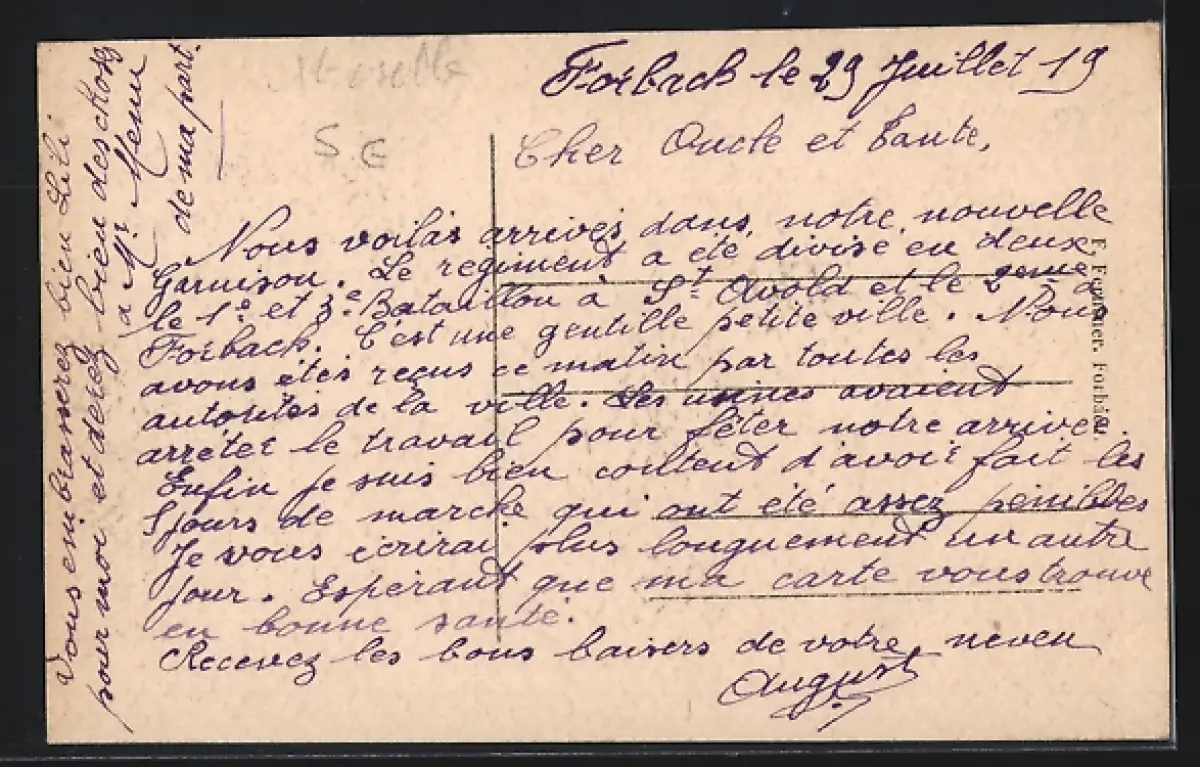 Moselle
S G
Forbach le 29 Juillet 19
Cher Oncle et Tante,
Nous voilas arrives dans notre nouvelle
Garnison. Le regiment a été divisé en deux
le 1e et 3e Bataillon à St Avold et le 2eme à
Forbach. C'est une gentille petite ville. Nous
avons étés reçus ce matin par toutes les
autorités de la ville. Les usines avaient
arrêter le travail pour fêter notre arrivée.
Enfin je suis bien content d'avoir fait les
5 jours de marche qui ont été assez penibles
Je vous écrirai plus longuement un autre
jour. Espérant que ma carte vous trouve
en bonne santé.
Recevez les bons baisers de votre neveu
August
Vous embrasserez bien Lili
pour moi et derez bien des choses
à Mr
de ma part.
Forbach.